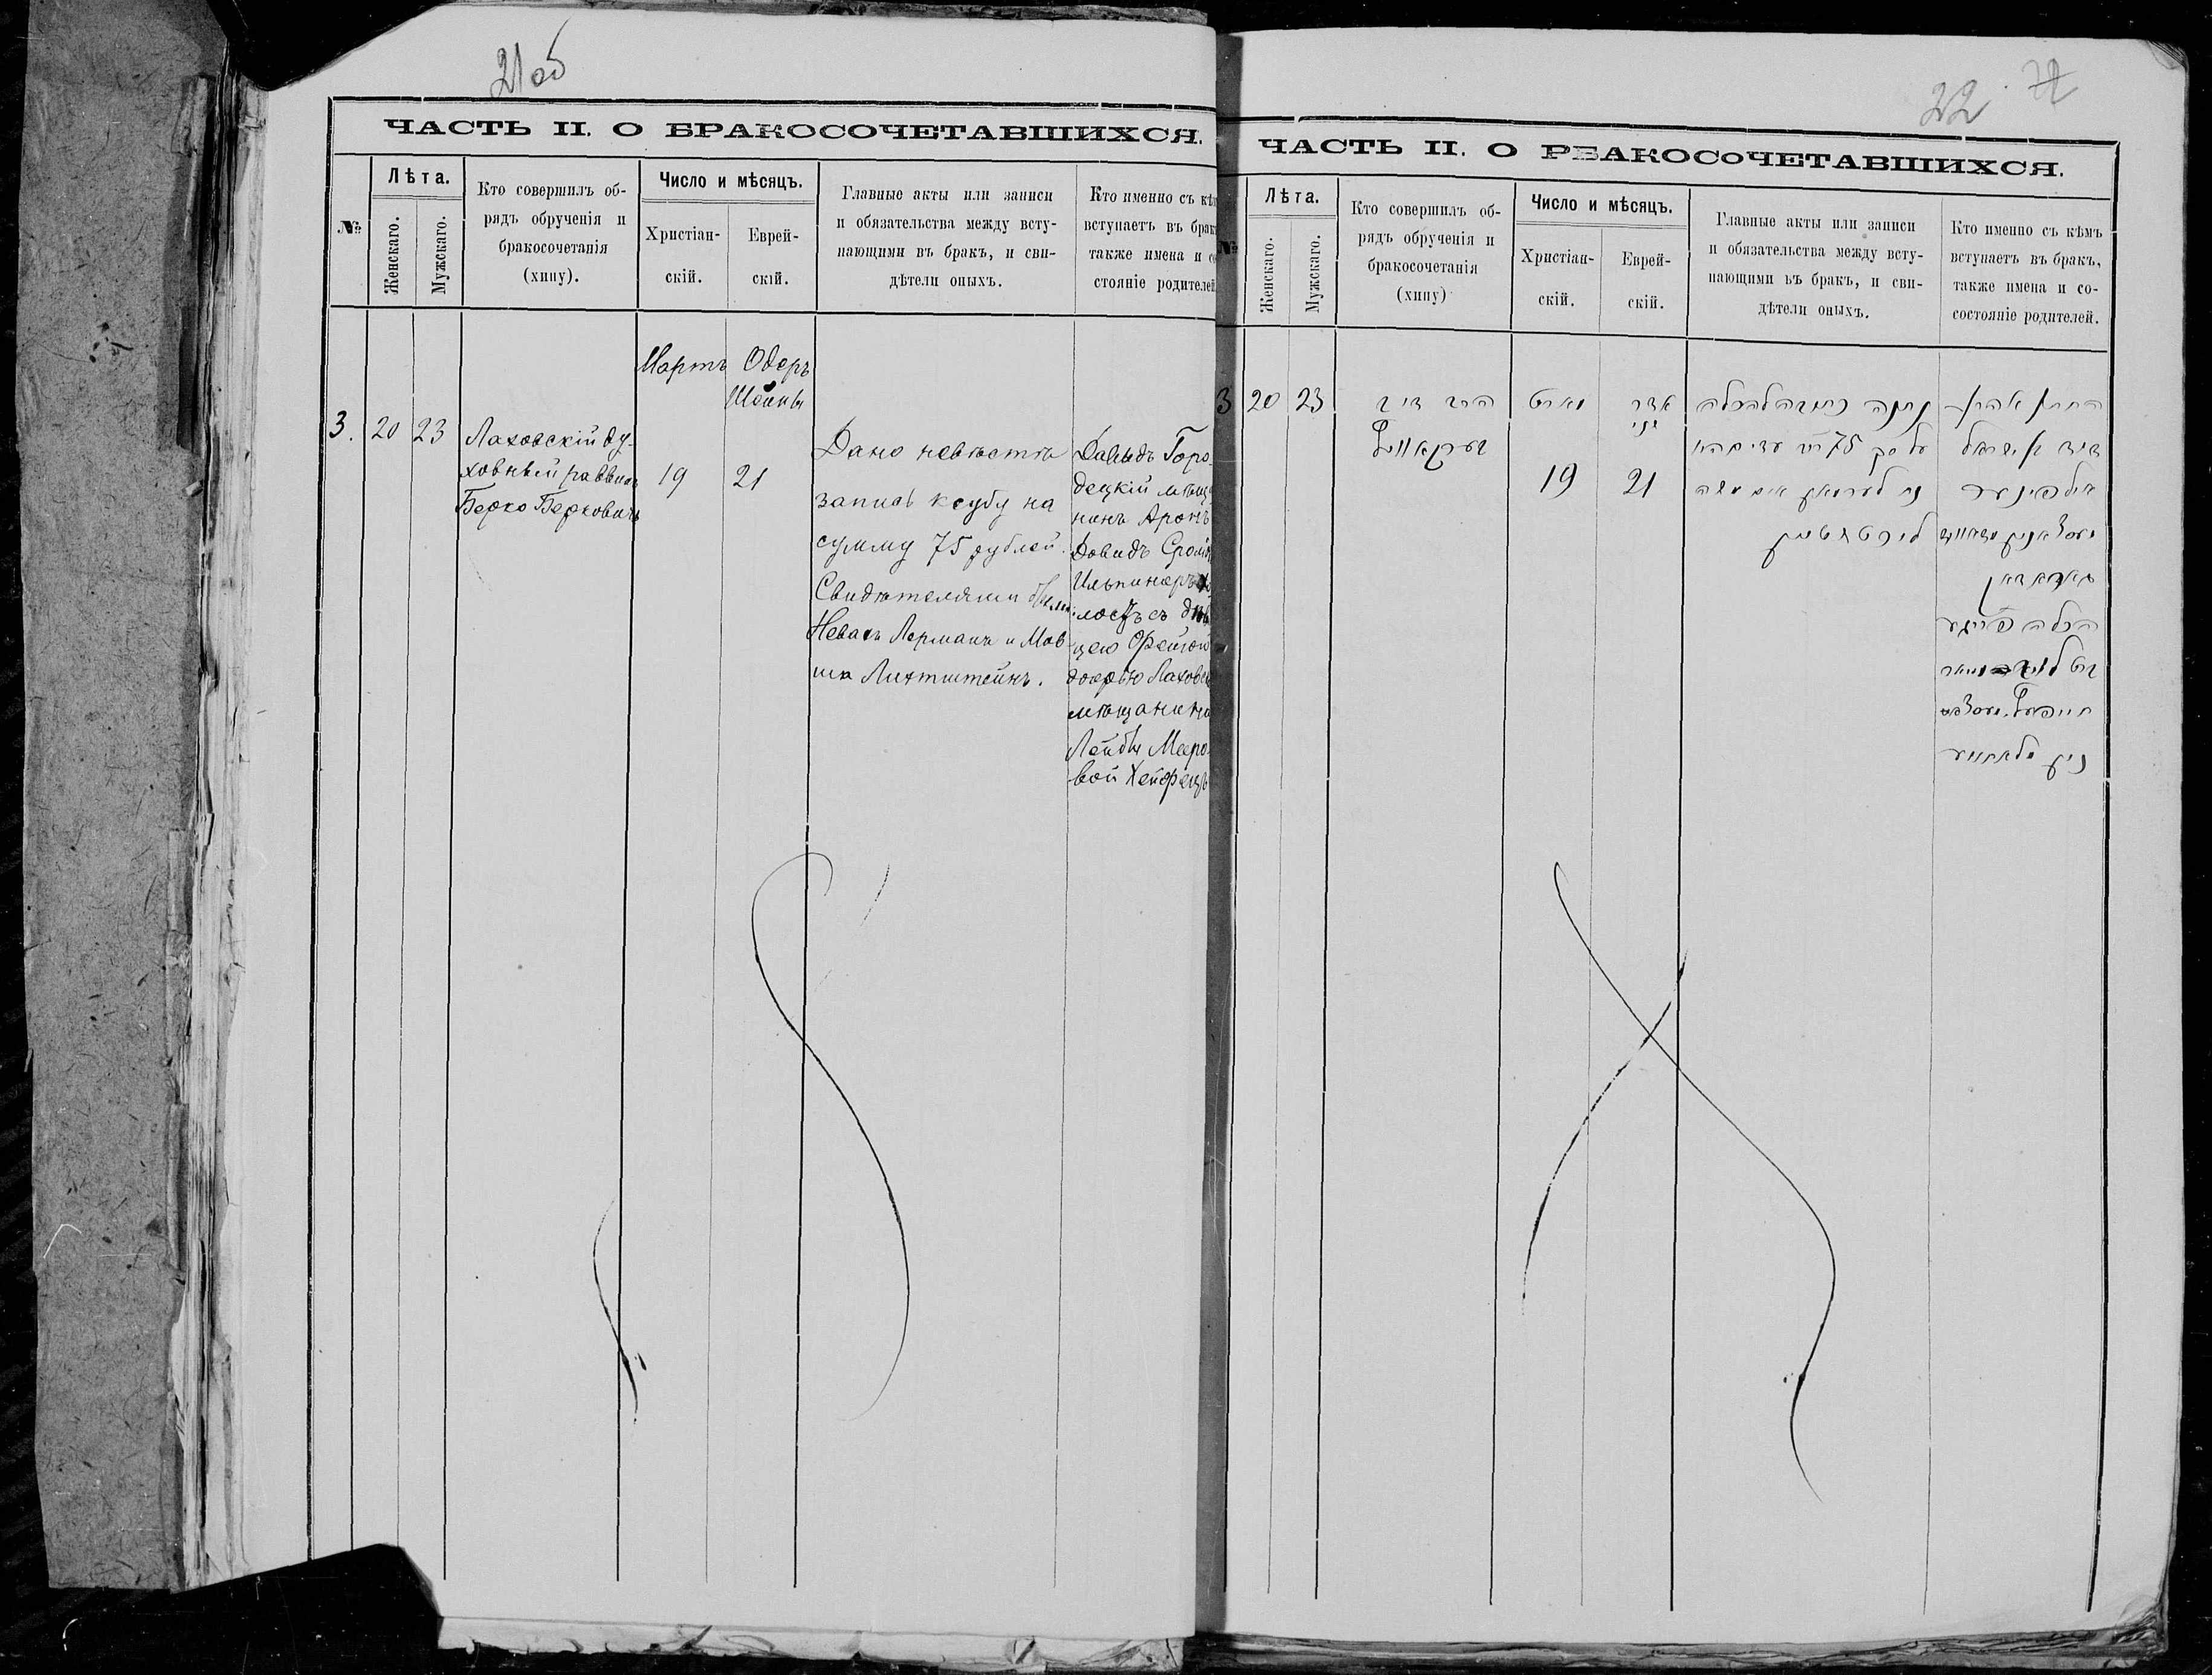 21об
ЧАСТЬ II. О БРАКОСОЧЕТАВШИХСЯ.
№
Лѣта.
Женскаго.
Мужскаго.
Кто совершилъ об-
рядъ обрученія и
бракосочетанія
(хипу).
Число и мѣсяцъ.
Христіан-
скій.
Еврей-
скій.
Главные акты или записи
и обязательства между всту-
пающими въ бракъ, и сви-
дѣтели оныхъ.
Кто именно съ кѣм
вступаетъ въ брак
также имена и со
стояніе родителей
3.
20
23
Лаховскій ду-
ховный раввинъ
Берко Берковичъ
Мартъ
19
Одеръ
Шейны
21
Дано невѣстѣ
запись ксубу на
сумму 75 рублей.
Свидѣтелями были:
Невахъ Лерманъ и Мов-
ша Лихтштейнъ.
Давыдъ Горо-
децкій мѣща
нинъ Аронъ
Довидъ Сролі
Ильпинеръ хо
лостъ съ дѣви
цею Фейгой
дочерью Лаховск
мѣщанина
Лейбы Мееро-
вой Хейфецъ
22
ЧАСТЬ II. О РБАКОСОЧЕТАВШИХСЯ.
№
Лѣта.
Женскаго.
Мужскаго.
Кто совершилъ об-
рядъ обрученія и
бракосочетанія
(хипу)
Число и мѣсяцъ.
Христіан-
скій.
Еврей-
скій.
Главные акты или записи
и обязательства между всту-
пающими въ бракъ, и сви-
дѣтели оныхъ.
Кто именно съ кѣмъ
вступаетъ въ бракъ,
также имена и со-
состояніе родителей.
3
20
23
הרב
בערקאוויץ
מארט
19
אדר
שני
21
נתנה כתובה להכלה
על סך 75 עדים הי׳
נח לערמאן משה
ליכטשטיין
החתן אהרן
דוד בן ישראל
אילפינער
הכלה פייגע
בת ליב מאיר
חייפעץ